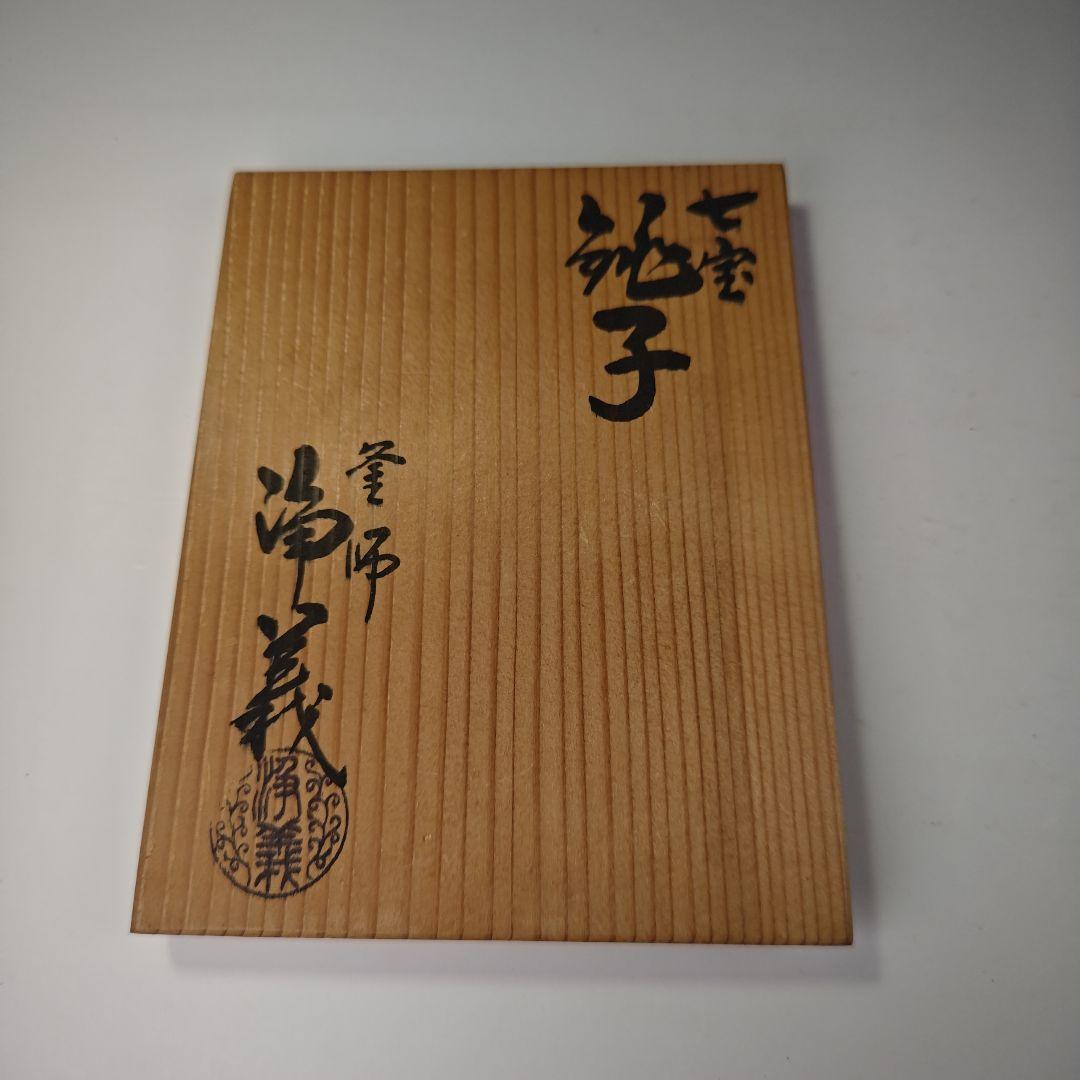 七宝
銚子
釜師
浄義
浄義